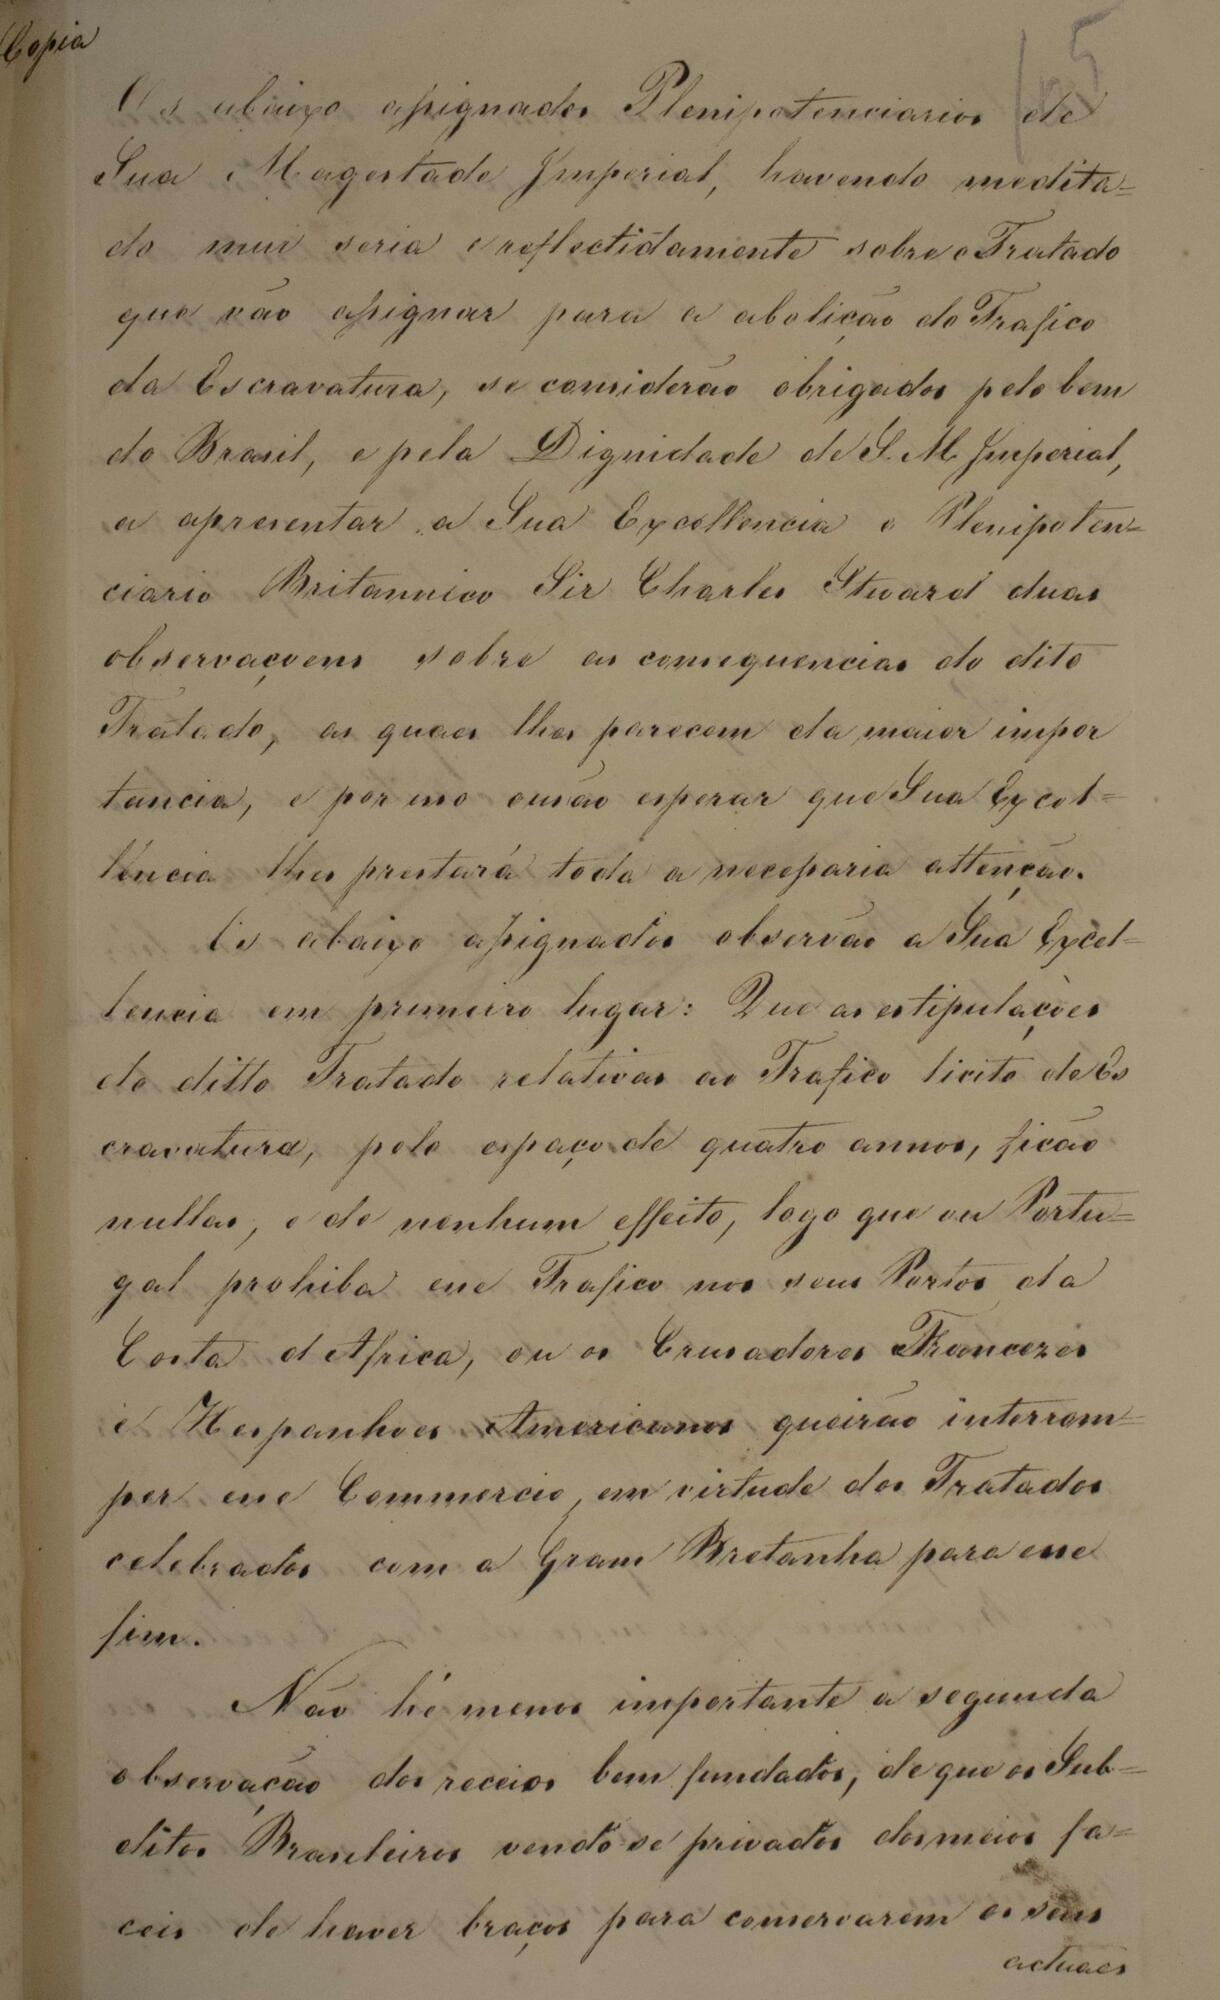 Copia
105
Os abaixo assignados Plenipotenciarios de
Sua Magestade Imperial, havendo medita=
do mui seria e reflectidamente sobre o Tratado
que vão assignar para a abolição do Trafico
da Escravatura, se considerão obrigados pelo bem
do Brasil, e pela Dignidade de S. M. Imperial,
a apresentar a Sua Excellencia o Plenipoten=
ciario Britannico Sir Charles Stuard duas
observaçoens sobre as consequencias do dito
Tratado, as quaes lhes parecem da maior impor
tancia, e por isso ousão esperar que Sua Excel=
lencia lhes prestará toda a necessaria attenção.
Os abaixo assignados observão a Sua Excel=
lencia em primeiro lugar: Que as estipulações
do ditto Tratado relativas ao Trafico licito da Es
cravatura, pelo espaço de quatro annos, ficão
nullas, e de nenhum effeito, logo que ou Portu=
gal prohiba esse Trafico nos seus Portos da
Costa d'Africa, ou os Crusadores Francezes
e Hespanhoes Americanos queirão interrom=
per esse Commercio, em virtude dos Tratados
celebrados com a Gram Bretanha para esse
fim.
Não hé menos importante a segunda
observação dos receios bem fundados, de que os Sub=
ditos Brasileiros vendo-se privados dos meios fa=
ceis de haver braços para conservarem os seus
actuaes